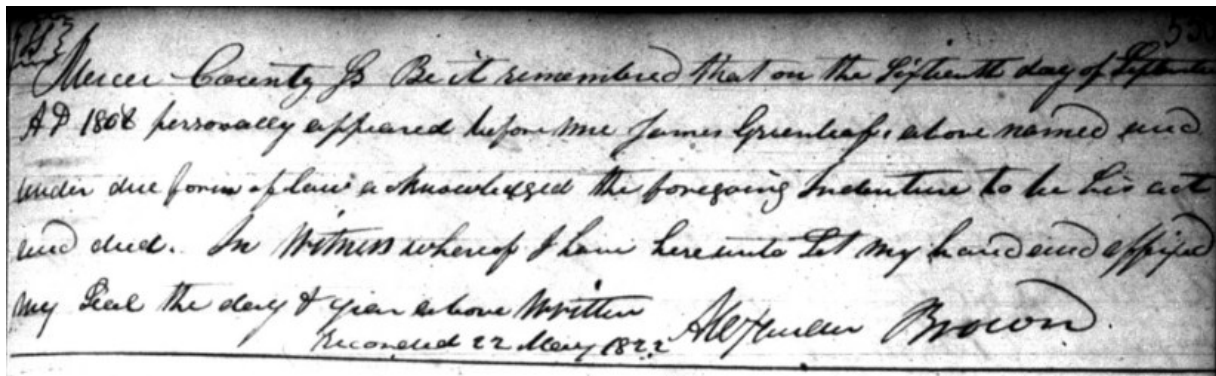 Mercer County Ss Be it remembered that on the Sixteenth day of September
AD 1808 personally appeared before me James Greenleaf above named and
under due form of law acknowledged the foregoing Indenture to be his act
and deed. In Witness whereof I have hereunto Set my hand and affixed
my Seal the day & year above Written
Alexander Brown
Recorded 22 May 1822